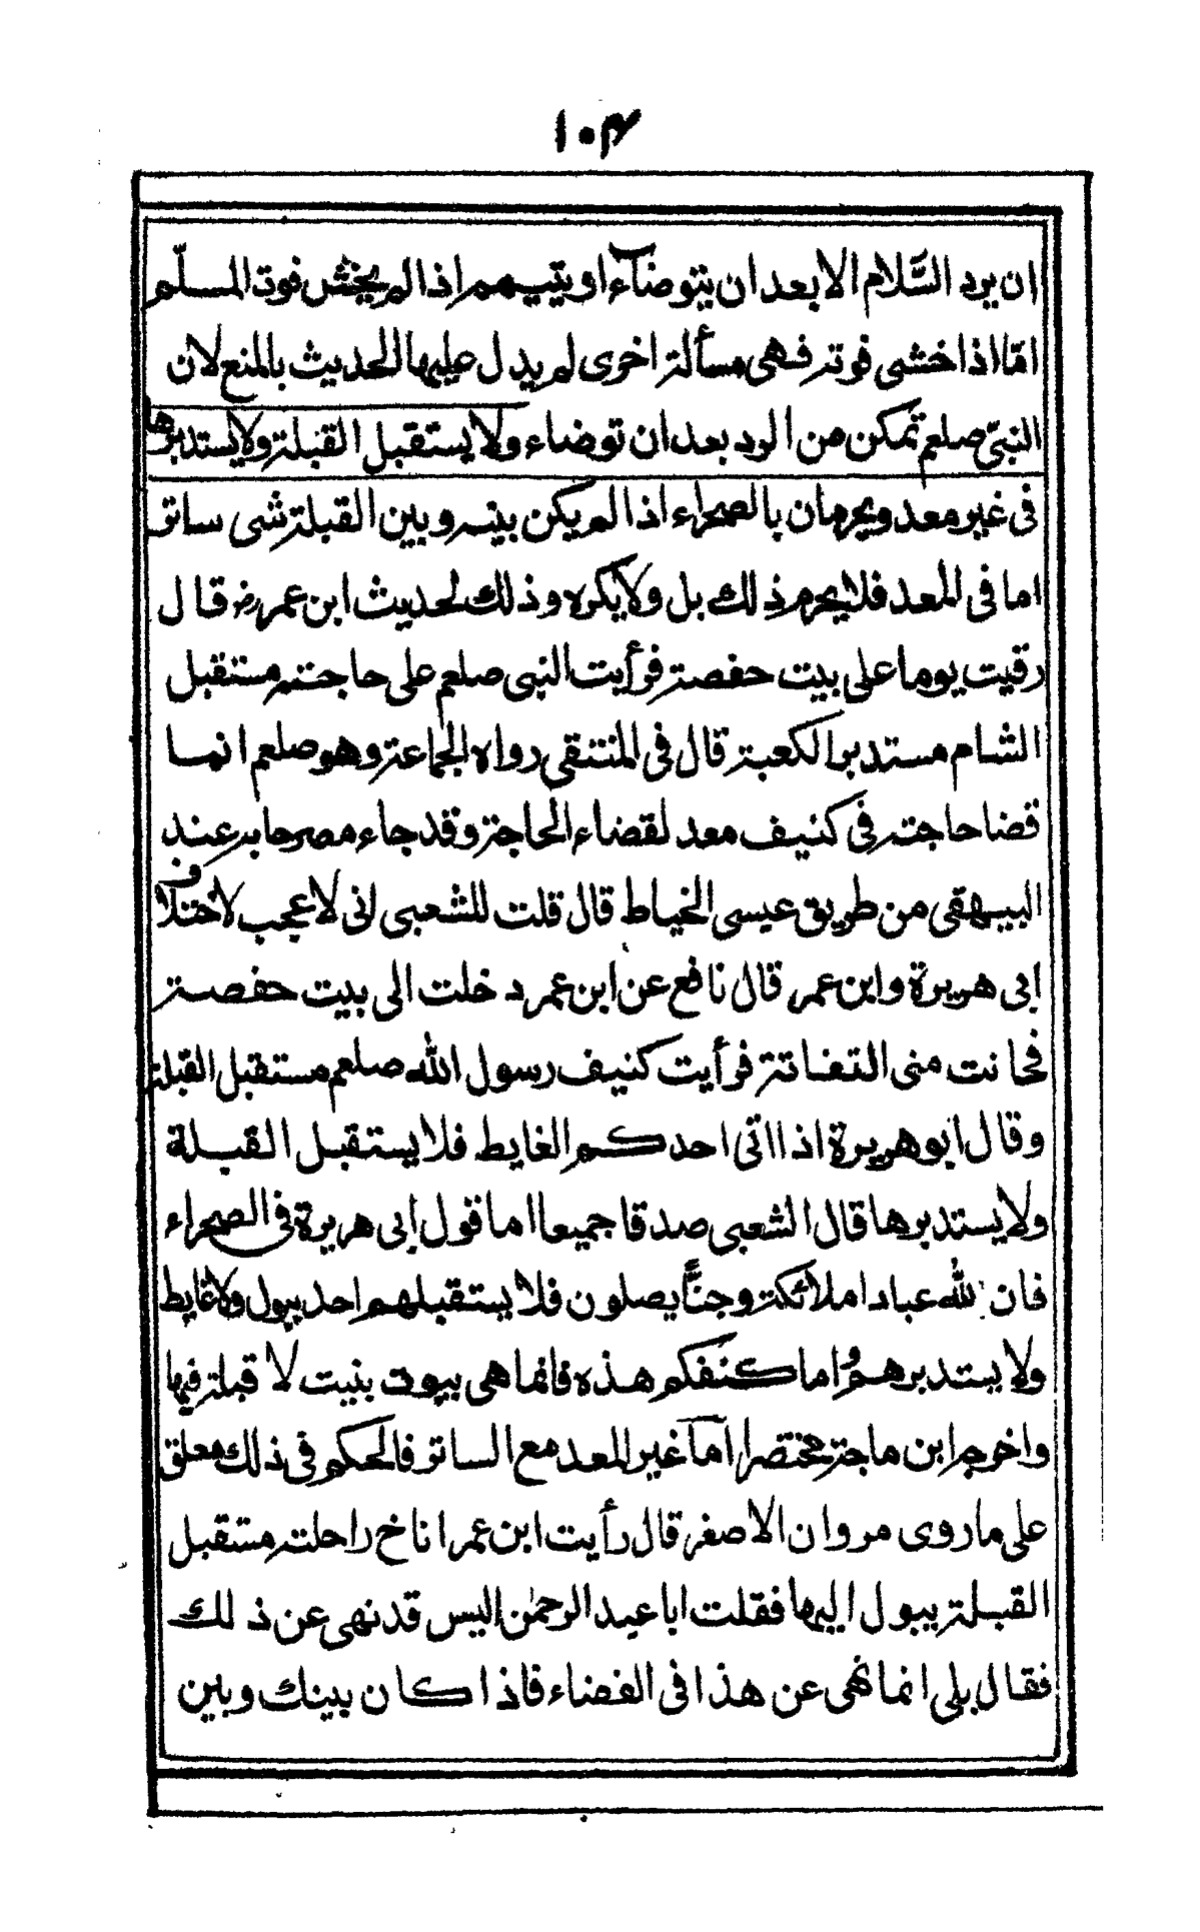 ١٠٣
ان يرد السّلام الا بعد ان يتوضاء او يتيمم اذا لم يخش فوت المسلّم
امّا اذا خشى فوته فهى مسألة اخرى لم يدل عليها الحديث بالمنع لان
النبىّ صلعم تمكن من الرد بعد ان توضاء ولا يستقبل القبلة ولا يستدبرها
فى غير معد ويحرمان بالصحراء اذا لم يكن بينه وبين القبلة شى ساتر
اما فى المعد فلا يحرم ذلك بل ولا يكره وذلك لحديث ابن عمر رضـ قال
رقيت يوما على بيت حفصة فرأيت النبى صلعم على حاجته مستقبل
الشام مستدبر الكعبة قال فى المنتقى رواه الجماعة وهو صلعم انما
قضا حاجته فى كنيف معد لقضاء الحاجة وقد جاء مصرحا به عند
البيهقى من طريق عيسى الخياط قال قلت للشعبى انى لاعجب لاختلاف
ابى هريرة وابن عمر قال نافع عن ابن عمر دخلت الى بيت حفصة
فحانت منى التفاتة فرأيت كنيف رسول الله صلعم مستقبل القبلة
وقال ابو هريرة اذا اتى احدكم الغايط فلا يستقبل القبلة
ولا يستدبرها قال الشعبى صدقا جميعا اما قول ابى هريرة فى الصحراء
فان لله عبادا ملائكة وجنًّا يصلون فلا يستقبلهم احد ببول ولا غايط
ولا يستدبرهم واما كنفكم هذه فانما هى بيوت بنيت لا قبلة فيها
واخرجه ابن ماجة مختصرا امّا غير المعد مع الساتر فالحكم فى ذلك معلق
على ما روى مروان الاصفر قال رأيت ابن عمر اناخ راحلته مستقبل
القبلة يبول اليها فقلت ابا عبد الرحمن اليس قد نهى عن ذلك
فقال بلى انما نهى عن هذا فى الفضاء فاذا كان بينك وبين